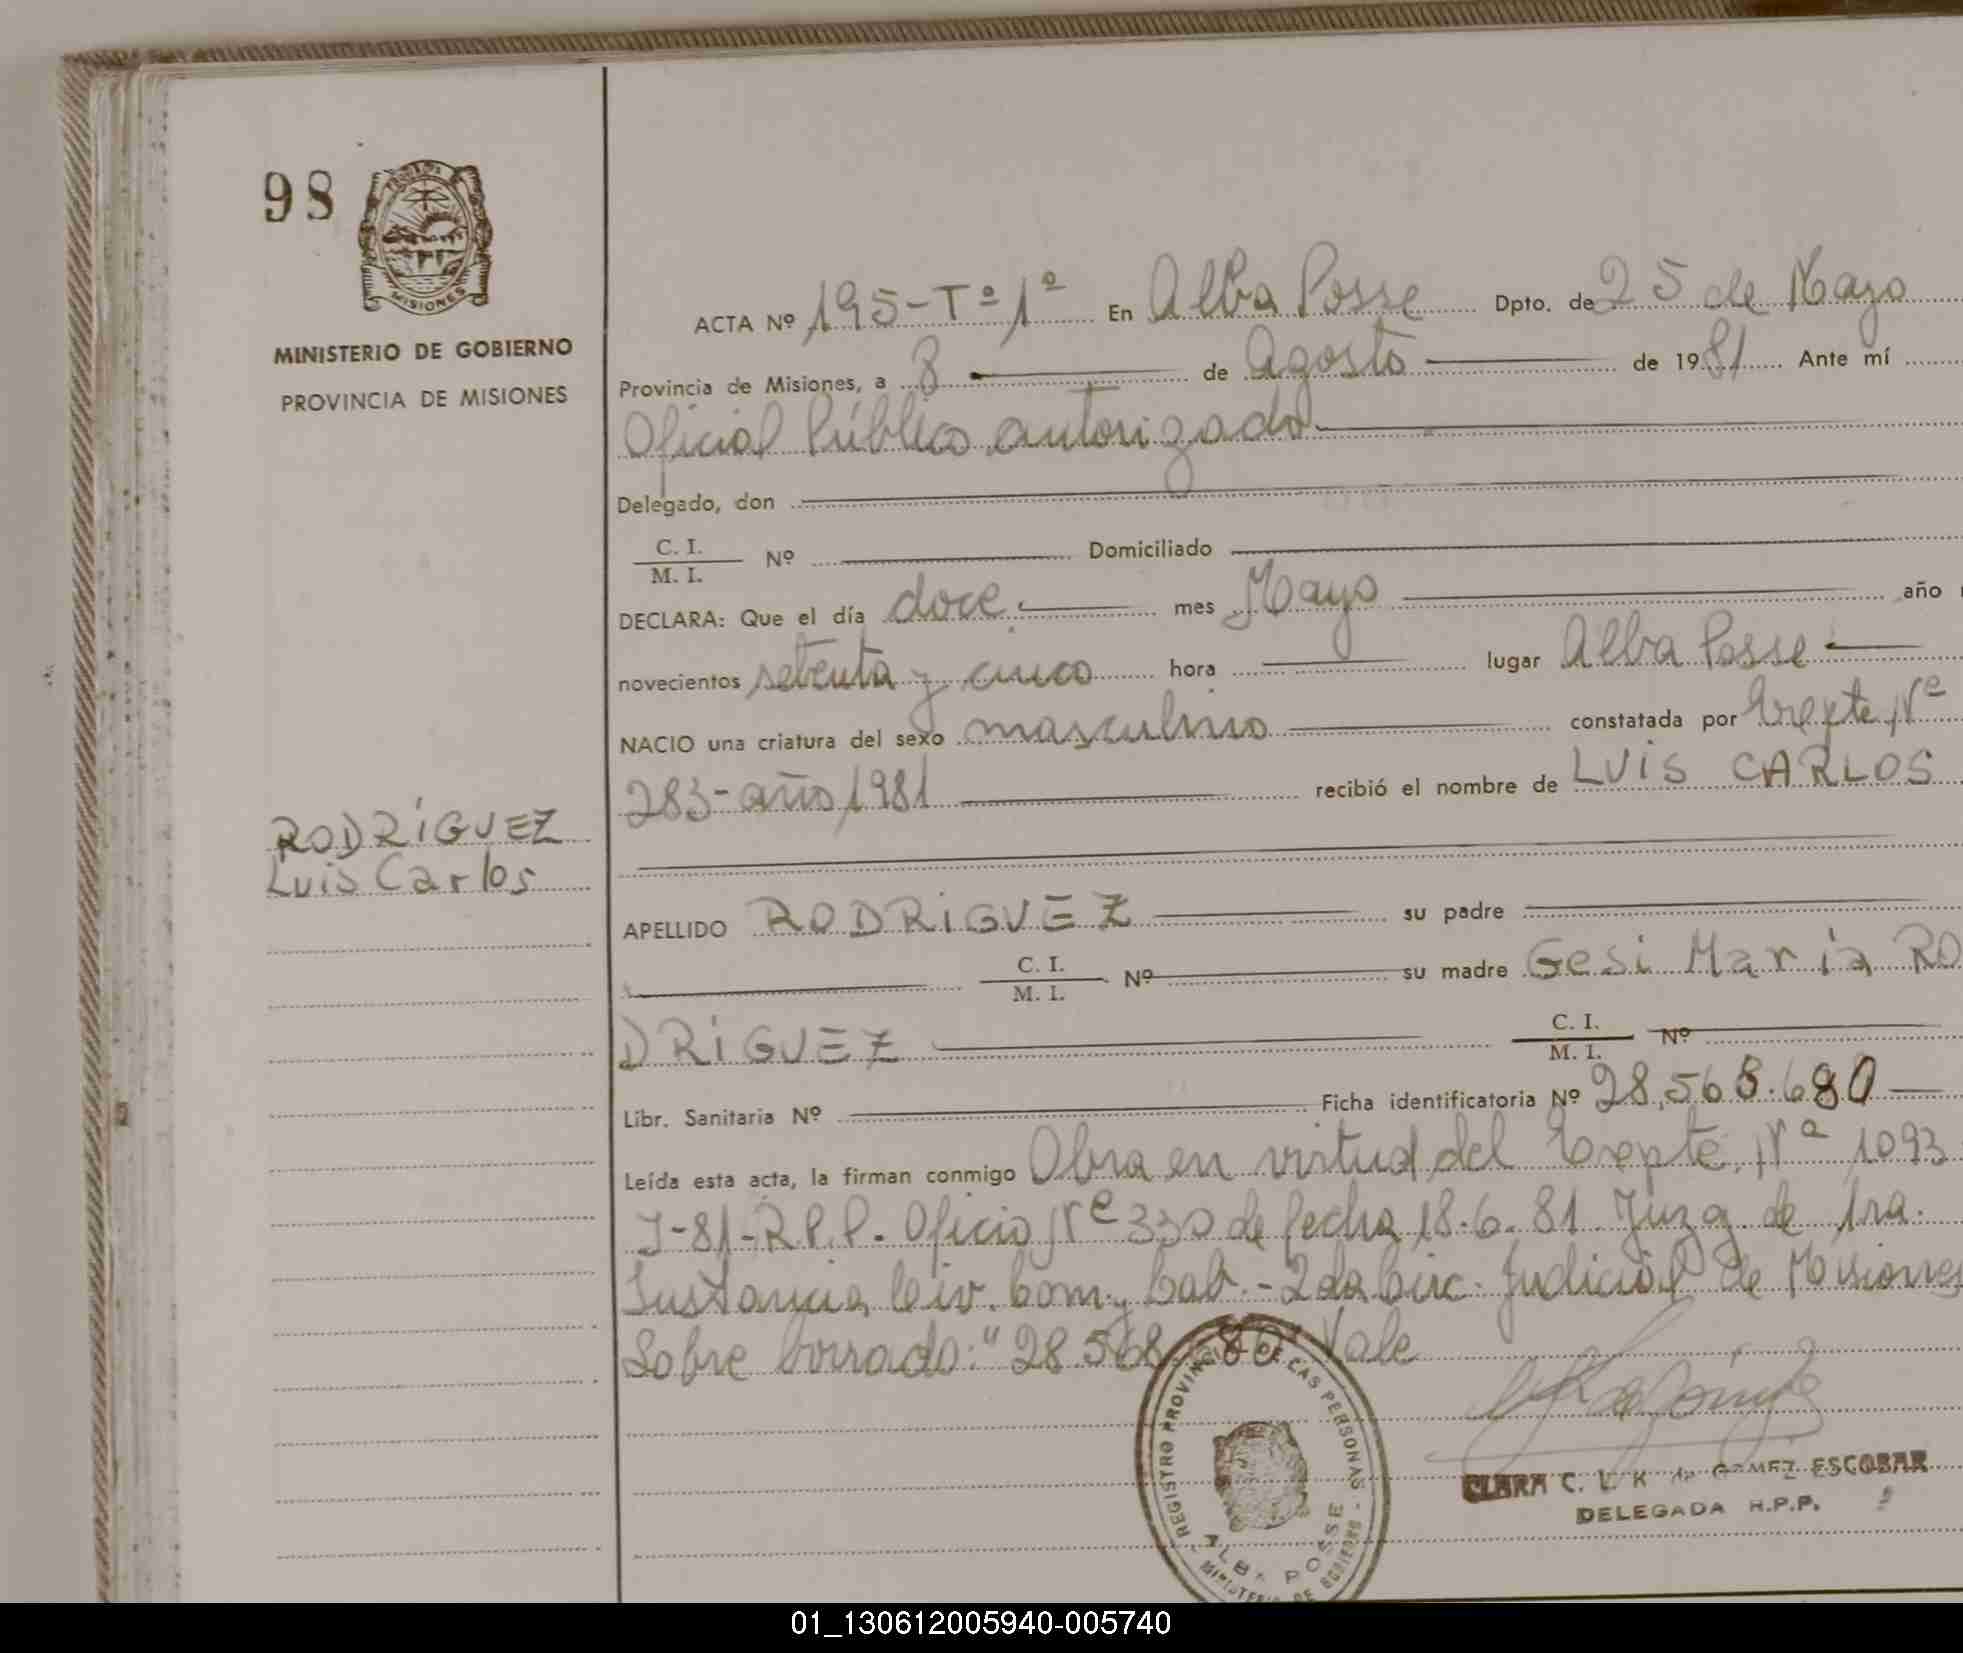 98
MISIONES
MINISTERIO DE GOBIERNO
PROVINCIA DE MISIONES
RODRÍGUEZ
Luis Carlos
ACTA Nº 195-Tº 1º En Alba Posse Dpto. de 25 de Mayo
Provincia de Misiones, a 8 de Agosto de 1981 Ante mí
Oficial Público autorizado
Delegado, don
C. I.
M. I. Nº Domiciliado
DECLARA: Que el día doce mes Mayo año
novecientos setenta y cinco hora lugar Alba Posse
NACIO una criatura del sexo masculino constatada por Expte Nº
283-año 1981 recibió el nombre de LUIS CARLOS
APELLIDO RODRIGUEZ su padre
C. I.
M. I. Nº su madre Gesi María RO
DRIGUEZ C. I.
M. I. Nº
Libr. Sanitaria Nº Ficha identificatoria Nº 28.568.680
Leída esta acta, la firman conmigo Obra en virtud del Expte. Nº 1093
J-81-R.P.P. Oficio Nº 330 de fecha 18.6.81 Juzg. de 1ra.
Instancia Civ. Com. y Lab. - 2da Circ. Judicial de Misiones
Sobre borrado: "28.568 80" Vale
REGISTRO PROVINCIAL DE LAS PERSONAS - MINISTERIO DE GOBIERNO -
ALBA POSSE
CLARA C. L. K de GAMEZ ESCOBAR
DELEGADA R.P.P.
01_130612005940-005740